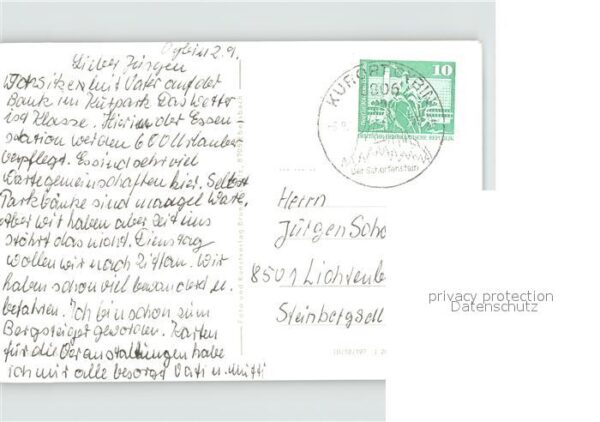 Oybin 2.9.
Lieber Jürgen
Wir sitzen mit Vater auf der
Bank im Kurpark Das Wetter
ist Klasse. Hier in der Essen
station werden 600 Urlauber
verpflegt. Es sind sehr viel
Wartegemeinschaften hier. Selbst
Parkbänke sind mangel Ware.
Aber wir haben aber Zeit uns
stöhrt das nicht. Dienstag
wollen wir nach Zittau. Wir
haben schon viel bewandert u.
befahren. Ich bin schon zum
Bergsteiger geworden. Karten
für die Veranstaltungen habe
ich mir alle besorgt Vati u. Mutti
KURORT OYBIN
8806
Der Scharfenstein
10
Herrn
Jürgen Scho
8501 Lichtenbe
Steinbergsell
privacy protection
Datenschutz